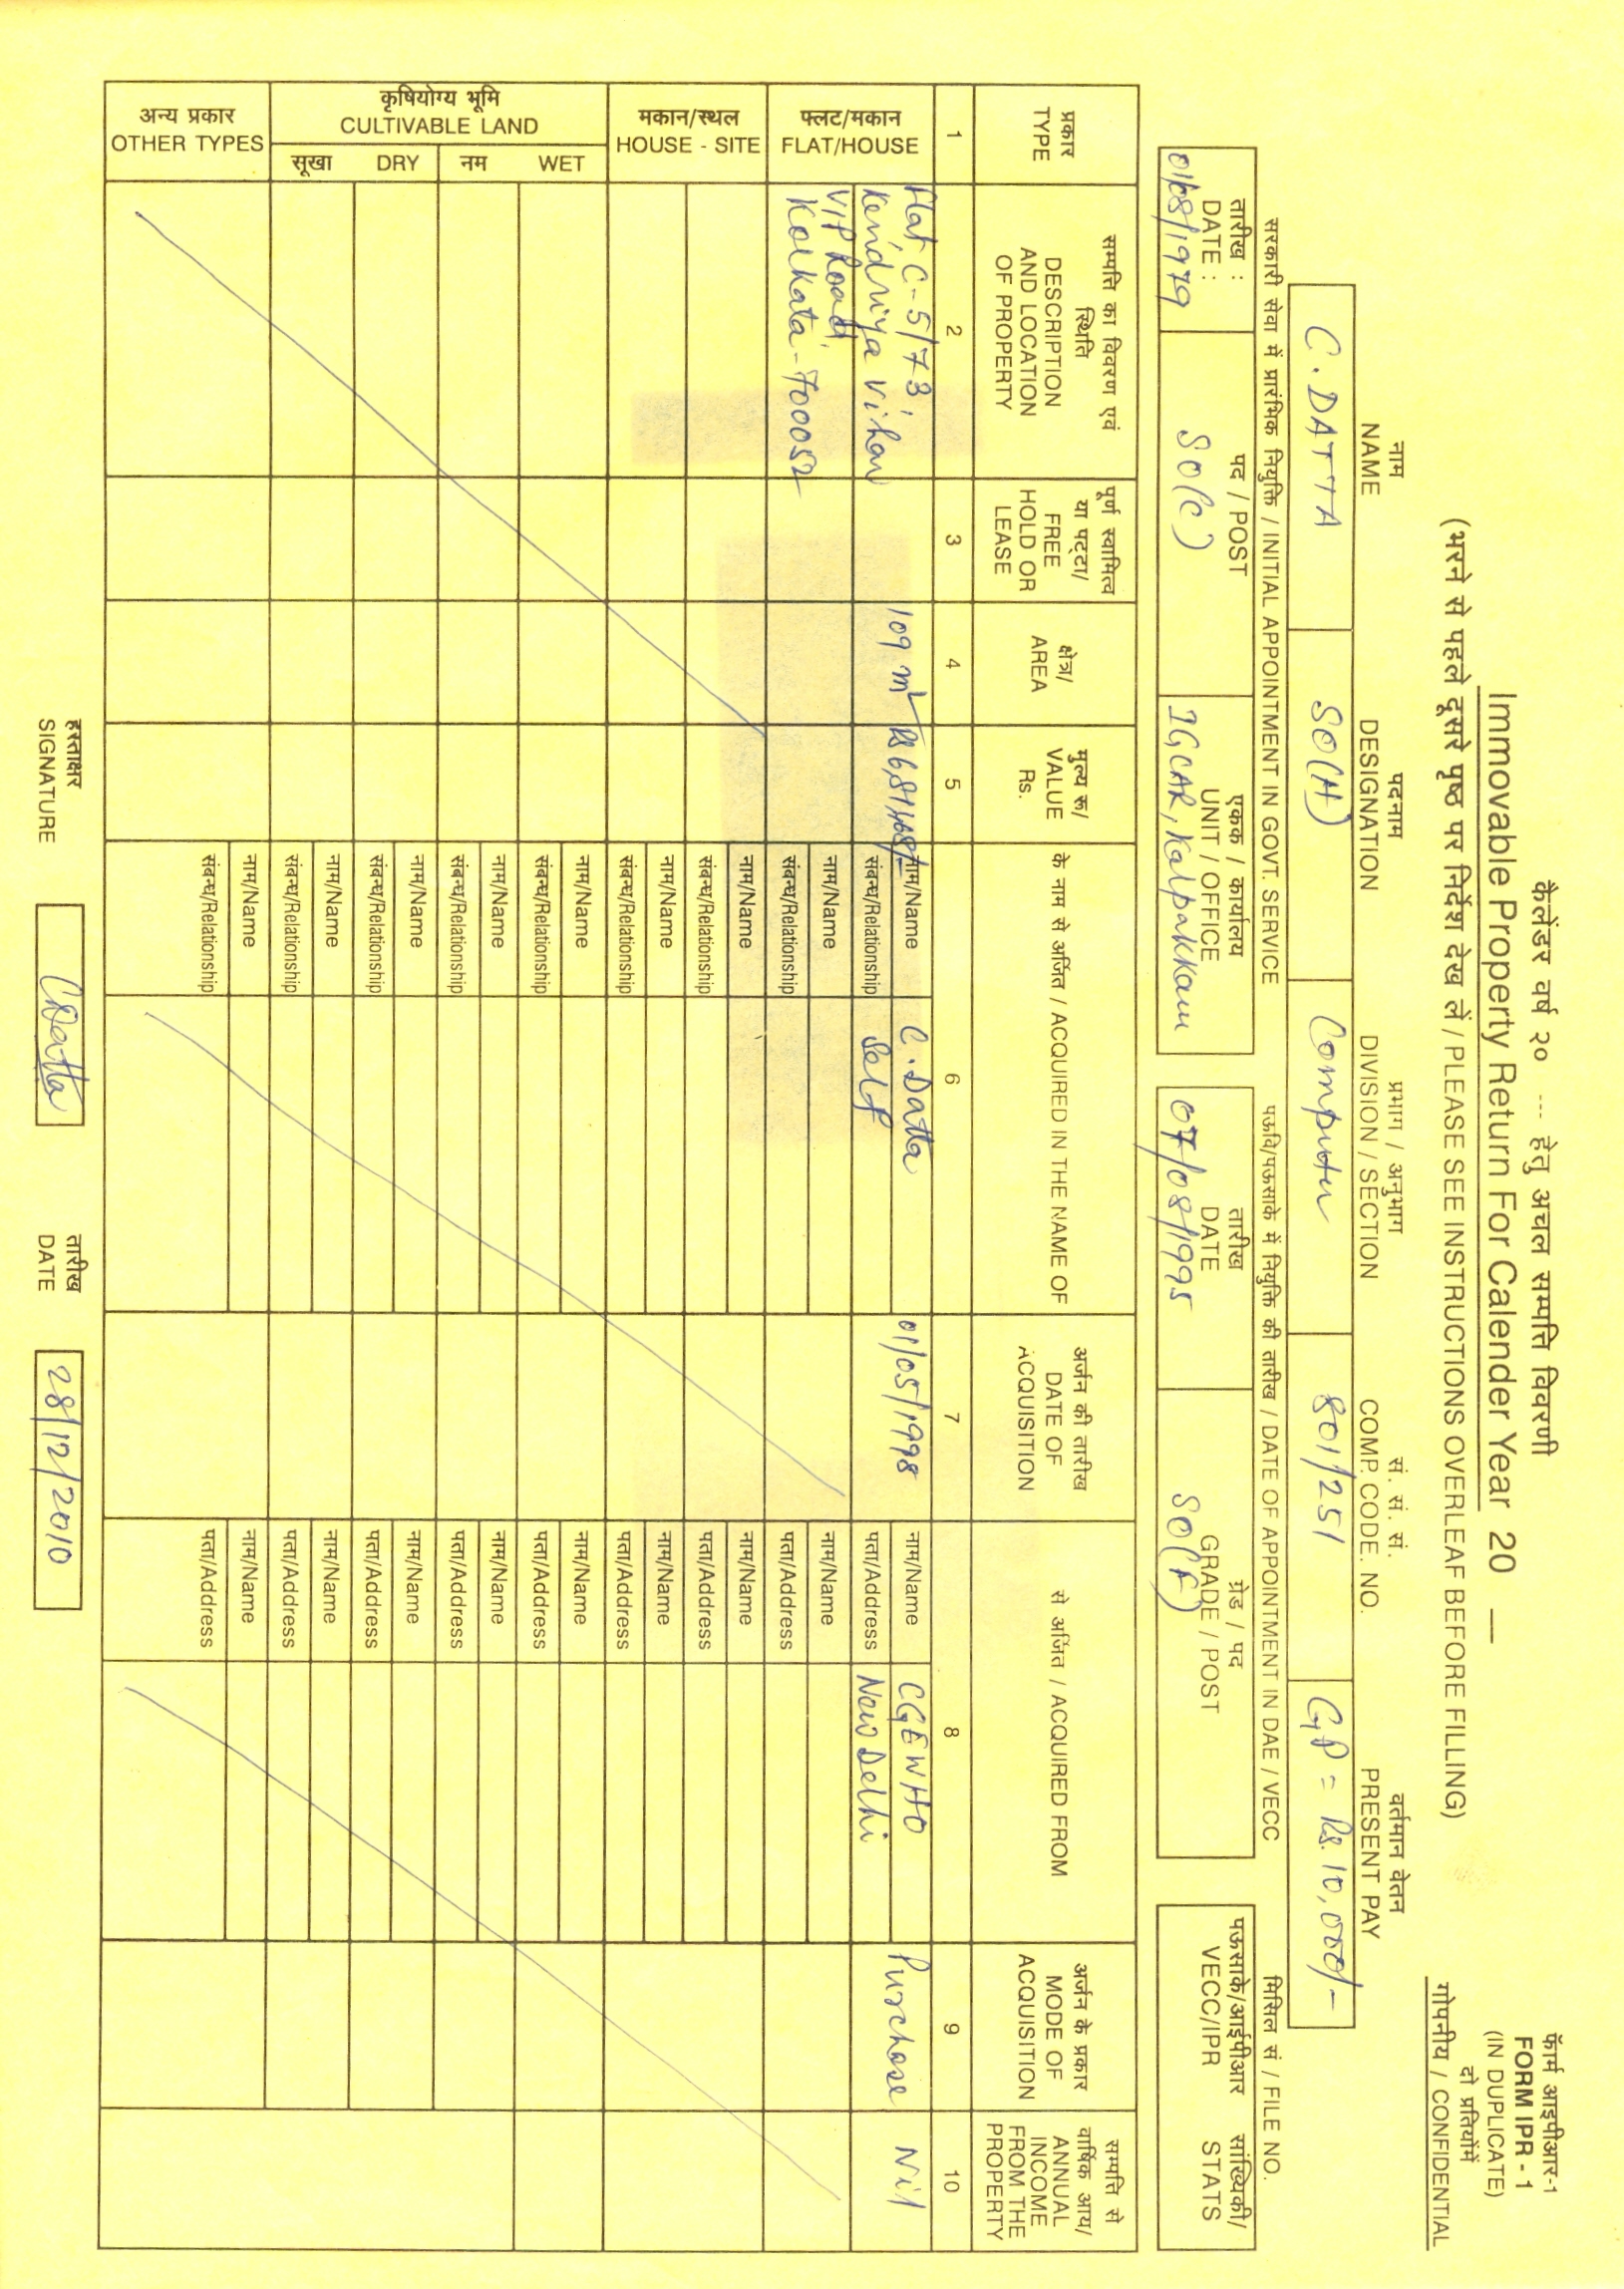 फॉर्म आइपीआर-1
FORM IPR - 1
(IN DUPLICATE)
दो प्रतियोंमें
गोपनीय / CONFIDENTIAL
कैलेंडर वर्ष २० --- हेतु अचल सम्पत्ति विवरणी
Immovable Property Return For Calender Year 20 —
(भरने से पहले दूसरे पृष्ठ पर निर्देश देख लें / PLEASE SEE INSTRUCTIONS OVERLEAF BEFORE FILLING)
नाम पदनाम प्रभाग / अनुभाग सं. सं. सं. वर्तमान वेतन
NAME DESIGNATION DIVISION / SECTION COMP. CODE. NO. PRESENT PAY
C. DATTA SO(H) Computer 801/251 GP = Rs. 10,000/-
सरकारी सेवा में प्रारंभिक नियुक्ति / INITIAL APPOINTMENT IN GOVT. SERVICE
पऊवि/पऊसाके में नियुक्ति की तारीख / DATE OF APPOINTMENT IN DAE / VECC
मिसिल सं / FILE NO.
तारीख : पद / POST एकक / कार्यालय तारीख ग्रेड / पद पऊसाके/आईपीआर सांख्यिकी/
DATE : UNIT / OFFICE DATE GRADE / POST VECC/IPR STATS
01/08/1979 SO(C) IGCAR, Kalpakkam 07/08/1995 SO(F)
प्रकार
TYPE
सम्पत्ति का विवरण एवं
स्थिति
DESCRIPTION
AND LOCATION
OF PROPERTY
पूर्ण स्वामित्व
या पट्टा/
FREE
HOLD OR
LEASE
क्षेत्र/
AREA
मुल्य रू/
VALUE
Rs.
के नाम से अर्जित / ACQUIRED IN THE NAME OF
अर्जन की तारीख
DATE OF
ACQUISITION
से अर्जित / ACQUIRED FROM
अर्जन के प्रकार
MODE OF
ACQUISITION
सम्पत्ति से
वार्षिक आय/
ANNUAL
INCOME
FROM THE
PROPERTY
1 2 3 4 5 6 7 8 9 10
फ्लट/मकान
FLAT/HOUSE
Flat C-5/73,
Kendriya Vihar
VIP Road
Kolkata-700052
109 m²
नाम/Name C. Datta
संबन्ध/Relationship Self
01/05/1998
नाम/Name CGEWHO
पता/Address New Delhi
Purchase
Nil
नाम/Name नाम/Name
संबन्ध/Relationship पता/Address
मकान/स्थल
HOUSE - SITE
नाम/Name नाम/Name
संबन्ध/Relationship पता/Address
नाम/Name नाम/Name
संबन्ध/Relationship पता/Address
कृषियोग्य भूमि
CULTIVABLE LAND
नम WET
नाम/Name नाम/Name
संबन्ध/Relationship पता/Address
नाम/Name नाम/Name
संबन्ध/Relationship पता/Address
सूखा DRY
नाम/Name नाम/Name
संबन्ध/Relationship पता/Address
नाम/Name नाम/Name
संबन्ध/Relationship पता/Address
अन्य प्रकार
OTHER TYPES
नाम/Name नाम/Name
संबन्ध/Relationship पता/Address
हस्ताक्षर
SIGNATURE
CDatta
तारीख
DATE
28/12/2010